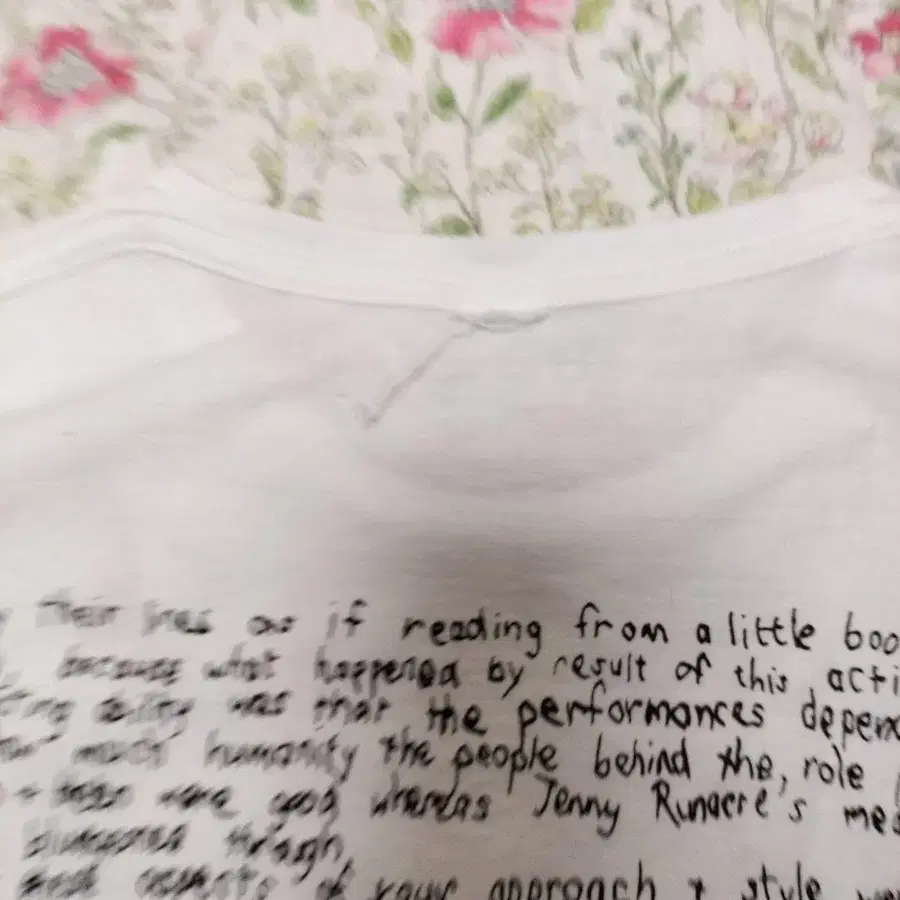 their lines as if reading from a little boo
because what happened by result of this, acti
was that the performances depen
much humanity the people behind the, role
were good whereas Jenny Runacre's me
through,
aspects of your approach + style